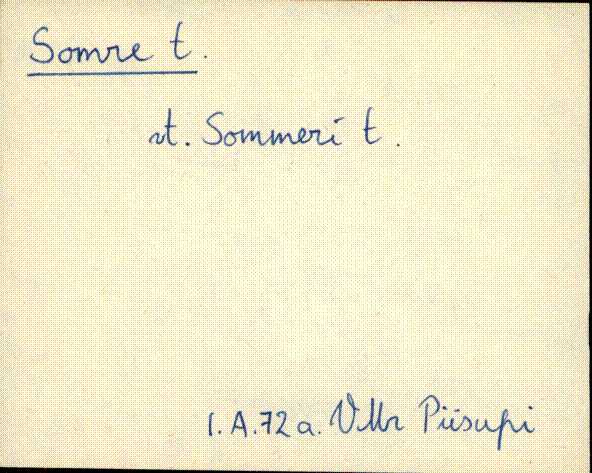 Somre t.
vt. Sommeri t.
I.A.72a. VMr Piisupi